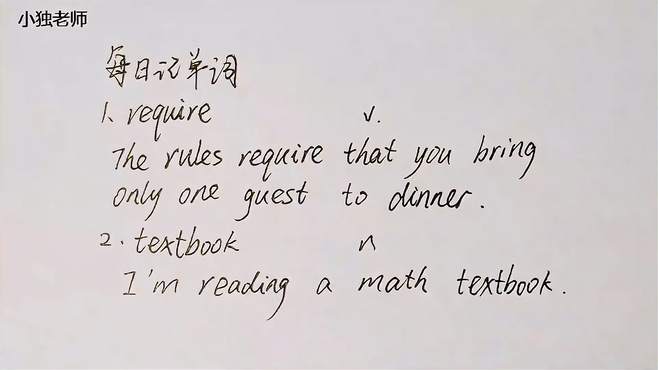 小独老师
每日记单词
1、require v.
The rules require that you bring
only one guest to dinner.
2.textbook n
I'm reading a math textbook.